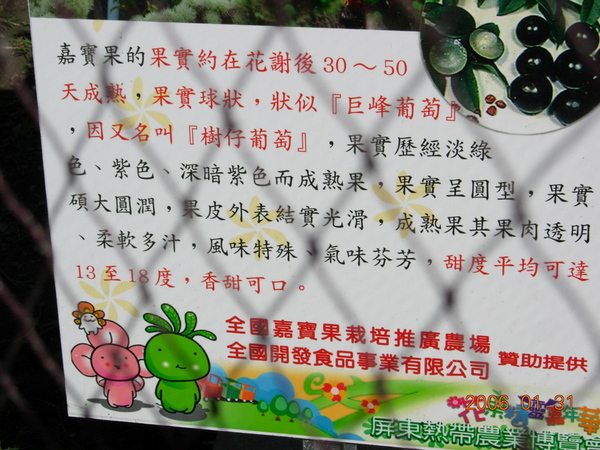 嘉寶果的果實約在花謝後30～50
天成熟，果實球狀，狀似『巨峰葡萄』
，因又名叫『樹仔葡萄』，果實歷經淡綠
色、紫色、深暗紫色而成熟果，果實呈圓型，果實
碩大圓潤，果皮外表結實光滑，成熟果其果肉透明
、柔軟多汁，風味特殊、氣味芬芳，甜度平均可達
13至18度，香甜可口。
全國嘉寶果栽培推廣農場
全國開發食品事業有限公司
贊助提供
2006.01.31
屏東熱帶農業博覽會